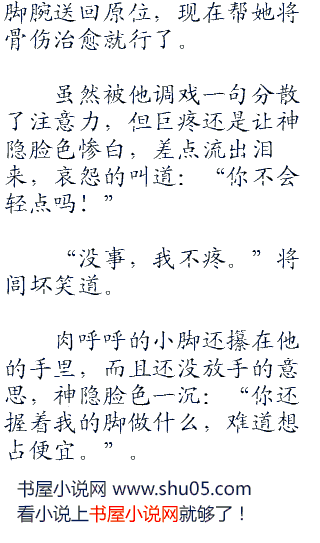 脚腕送回原位，现在帮她将
骨伤治愈就行了。
虽然被他调戏一句分散
了注意力，但巨疼还是让神
隐脸色惨白，差点流出泪
来，哀怨的叫道：“你不会
轻点吗！”
“没事，我不疼。”将
闾坏笑道。
肉呼呼的小脚还攥在他
的手里，而且还没放手的意
思，神隐脸色一沉：“你还
握着我的脚做什么，难道想
占便宜。”。
书屋小说网 www.shu05.com
看小说上书屋小说网就够了！